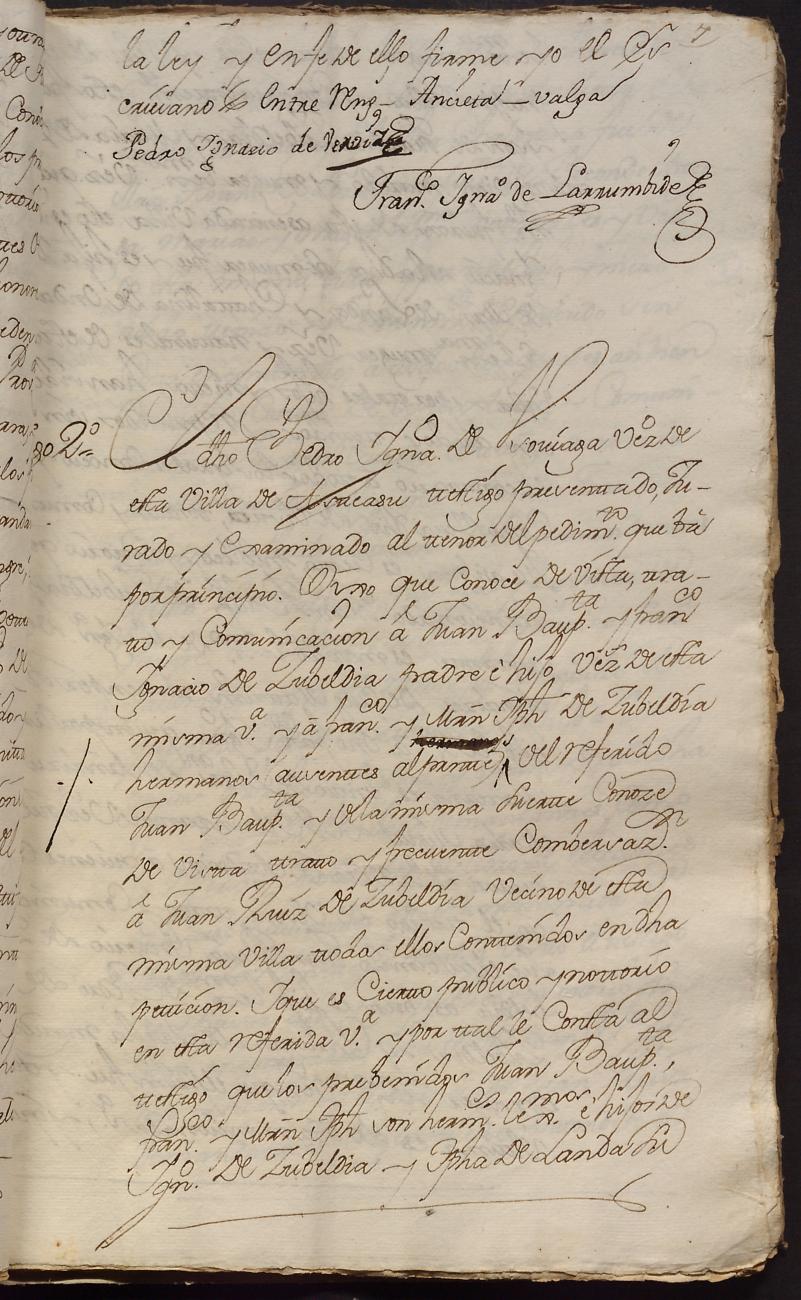 la ley y en fe de ello firme yo el Es 7
crivano Entre Reng.s Ancieta valga
Pedro Ignacio de
Fran.co Igna.o de Larrumbide
2.o
Pedro Igna.o de Vez.o de
esta Villa de testigo presentado, Ju-
rado y examinado al tenor del pedim.to que bá
por principio. Dixo que Conoce de Vista, tra-
to y Comunicacion á Juan Baup.ta y fran.co
Ignacio de Zubeldia padre é hijo Vez.s de esta
misma V.a y á fran.co y Man.l Jph de Zubeldia
hermanos ausentes al prnte, del referido
Juan Baup.ta y dela misma suerte Conoze
de Vista trato y frecuente Combersaz.n
á Juan Ruiz de Zubeldia Vecino de esta
misma Villa todos ellos Contenidos en dha
peticion. I que es Cierto publico y nottorio
en esta referida V.a y por tal le Consta al
testigo que los prebenidos Juan Baup.ta,
fran.co y Man.l Jph son herm.os lex.mos é hijos de
Ign.o de Zubeldia y Jpha de Landa su